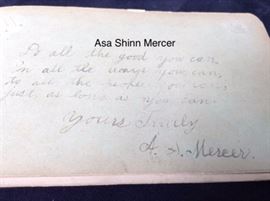 Asa Shinn Mercer
Do all the good you can,
in all the ways you can,
to all the people you can,
just as long as you can.
Yours Truly
A. S. Mercer.